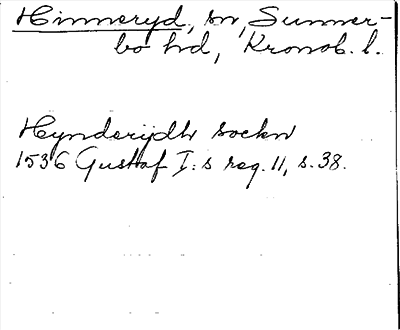 Hinneryd, sn, Sunner-
bo hd, Kronob. l.
Hynderijdh sockn
1536 Gustaf I:s reg. 11, s. 38.